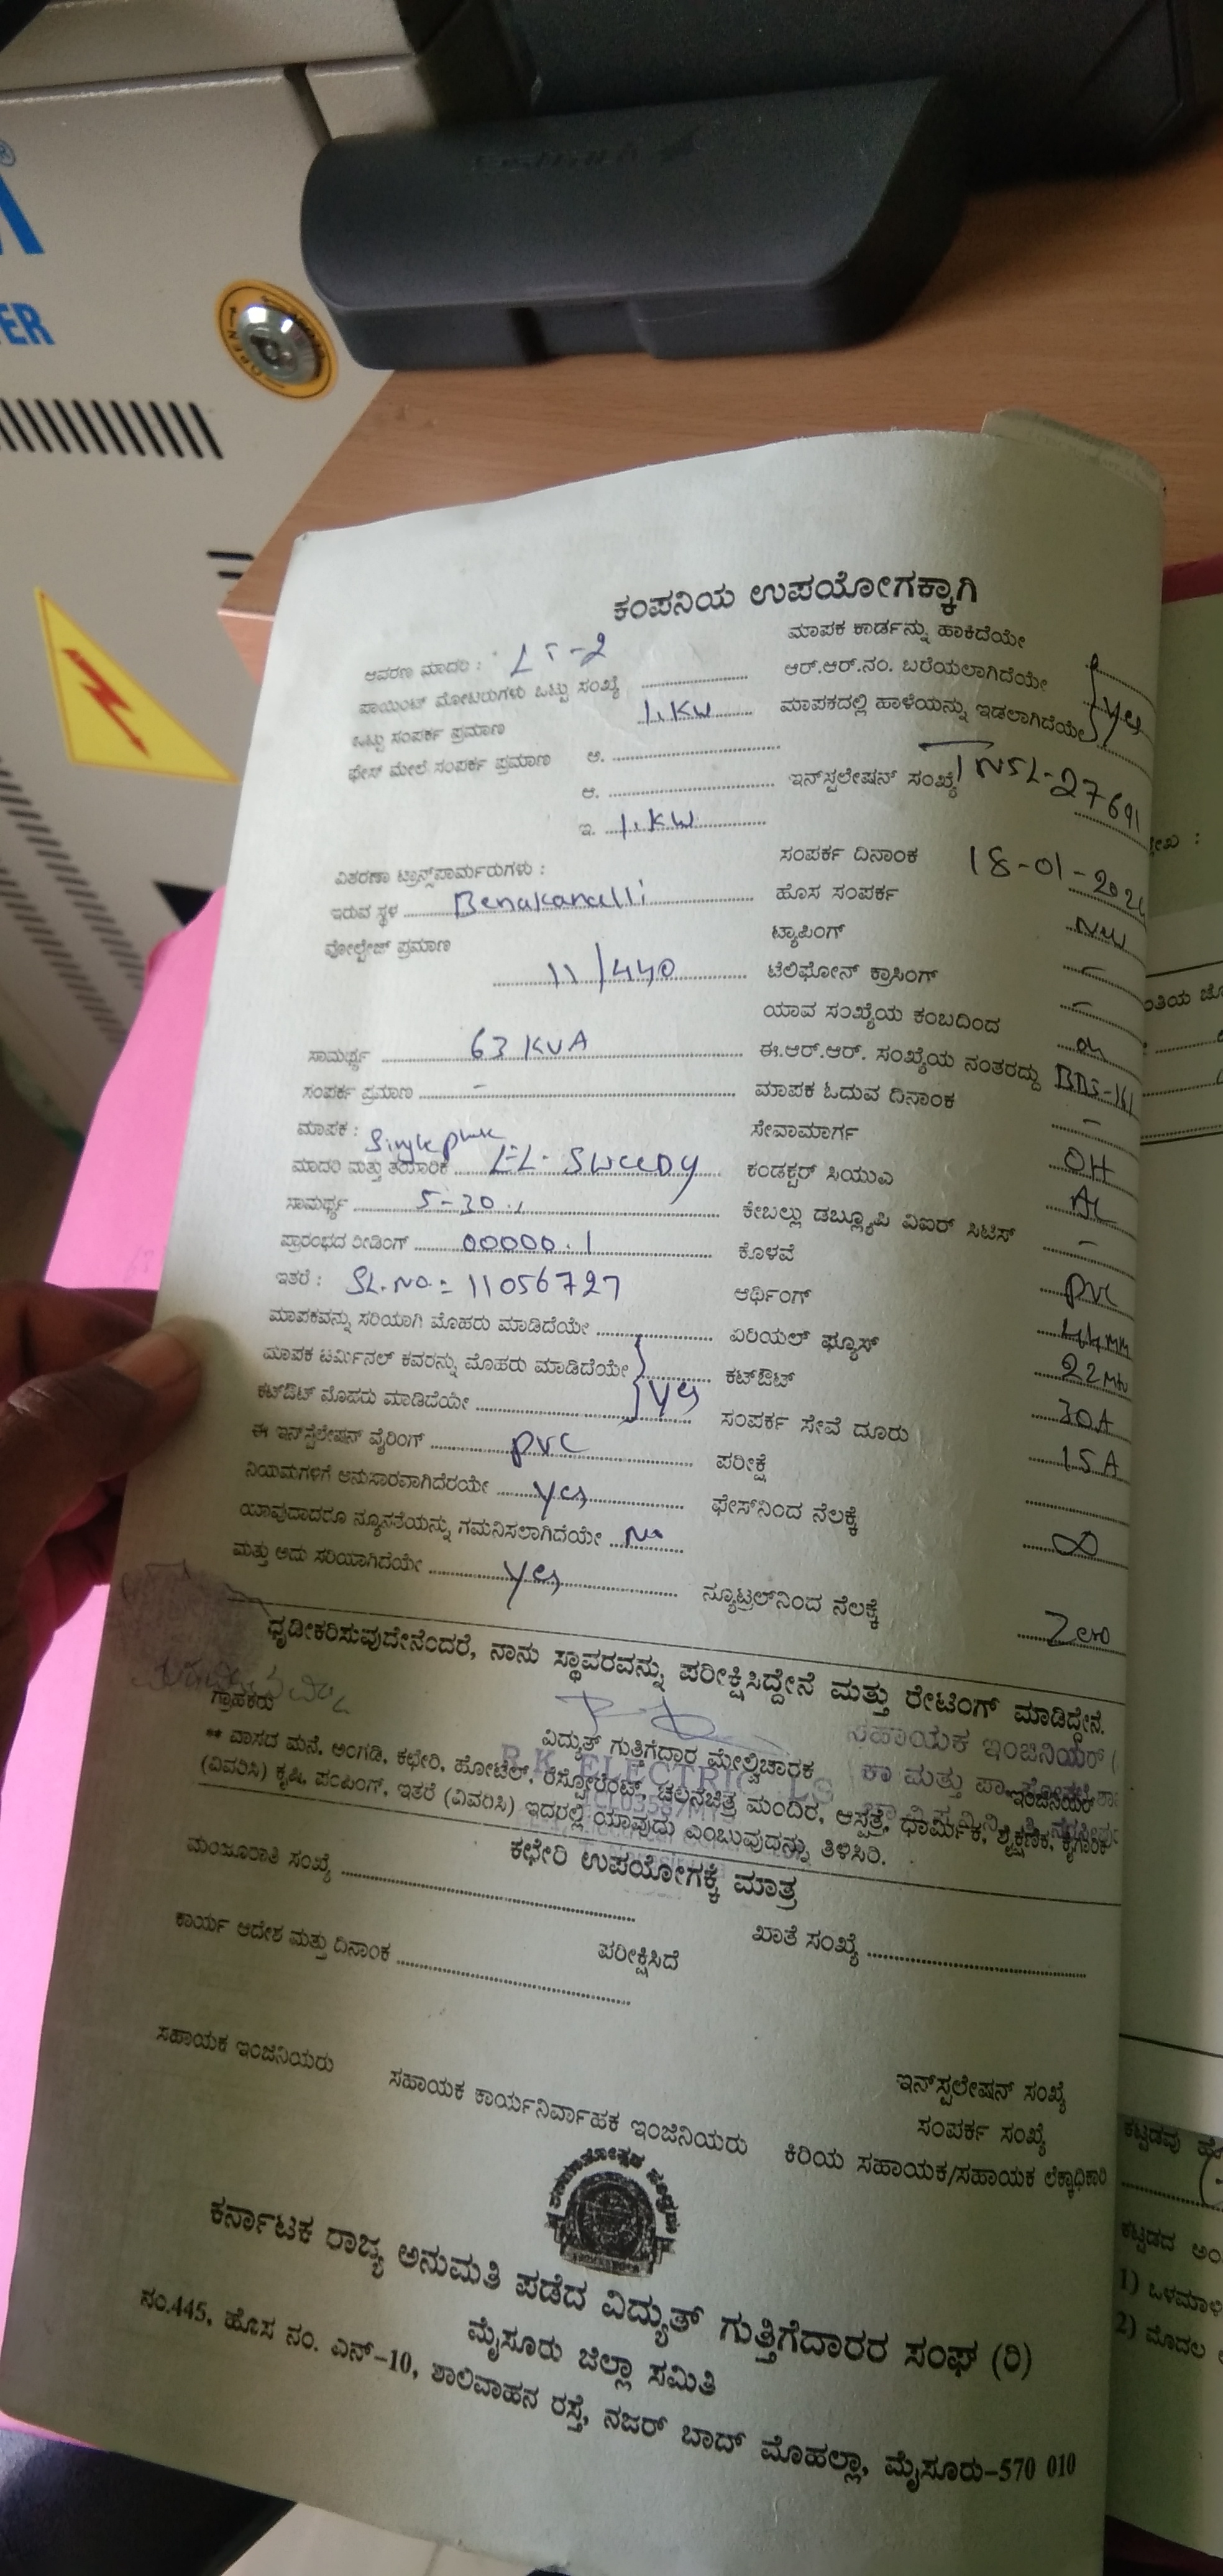 ER
OPEN
ಕಂಪನಿಯ ಉಪಯೋಗಕ್ಕಾಗಿ
ಆವರಣ ಮಾದರಿ : LT-2
ಪಾಯಿಂಟ್ ಮೋಟರುಗಳು ಒಟ್ಟು ಸಂಖ್ಯೆ
ಒಟ್ಟು ಸಂಪರ್ಕ ಪ್ರಮಾಣ 1.KW
ಫೇಸ್ ಮೇಲೆ ಸಂಪರ್ಕ ಪ್ರಮಾಣ ಅ.
ಆ.
ಇ. 1.KW
ವಿತರಣಾ ಟ್ರಾನ್ಸ್‌ಫಾರ್ಮರುಗಳು :
ಇರುವ ಸ್ಥಳ Benakanalli
ವೋಲ್ಟೇಜ್ ಪ್ರಮಾಣ
11/440
ಸಾಮರ್ಥ್ಯ 63 KVA
ಸಂಪರ್ಕ ಪ್ರಮಾಣ -
ಮಾಪಕ : Single phase
ಮಾದರಿ ಮತ್ತು ತಯಾರಿಕೆ
ಸಾಮರ್ಥ್ಯ 5-30
ಪ್ರಾರಂಭದ ರೀಡಿಂಗ್ 00000.1
ಇತರೆ : SL.NO.= 11056727
ಮಾಪಕವನ್ನು ಸರಿಯಾಗಿ ಮೊಹರು ಮಾಡಿದೆಯೇ
ಮಾಪಕ ಟರ್ಮಿನಲ್ ಕವರನ್ನು ಮೊಹರು ಮಾಡಿದೆಯೇ
ಕಟ್‌ಔಟ್ ಮೊಹರು ಮಾಡಿದೆಯೇ yes
ಈ ಇನ್‌ಸ್ಟಲೇಷನ್ ವೈರಿಂಗ್ PVC
ನಿಯಮಗಳಿಗೆ ಅನುಸಾರವಾಗಿದೆರಯೇ yes
ಯಾವುದಾದರೂ ನ್ಯೂನತೆಯನ್ನು ಗಮನಿಸಲಾಗಿದೆಯೇ No
ಮತ್ತು ಅದು ಸರಿಯಾಗಿದೆಯೇ yes
ಮಾಪಕ ಕಾರ್ಡನ್ನು ಹಾಕಿದೆಯೇ
ಆರ್.ಆರ್.ನಂ. ಬರೆಯಲಾಗಿದೆಯೇ
ಮಾಪಕದಲ್ಲಿ ಹಾಳೆಯನ್ನು ಇಡಲಾಗಿದೆಯೇ yes
ಇನ್‌ಸ್ಟಲೇಷನ್ ಸಂಖ್ಯೆ TNSL-27691
ಸಂಪರ್ಕ ದಿನಾಂಕ 18-01-202
ಹೊಸ ಸಂಪರ್ಕ New
ಟ್ಯಾಪಿಂಗ್ -
ಟೆಲಿಫೋನ್ ಕ್ರಾಸಿಂಗ್ -
ಯಾವ ಸಂಖ್ಯೆಯ ಕಂಬದಿಂದ
ಈ.ಆರ್.ಆರ್. ಸಂಖ್ಯೆಯ ನಂತರದ್ದು
ಮಾಪಕ ಓದುವ ದಿನಾಂಕ -
ಸೇವಾಮಾರ್ಗ OH
ಕಂಡಕ್ಟರ್ ಸಿಯುಎ AL
ಕೇಬಲ್ಲು ಡಬ್ಲ್ಯೂಪಿ ವಿಐರ್ ಸಿಟಿಸ್ -
ಕೊಳವೆ PVC
ಆರ್ಥಿಂಗ್
ಏರಿಯಲ್ ಫ್ಯೂಸ್
ಕಟ್‌ಔಟ್ 30A
ಸಂಪರ್ಕ ಸೇವೆ ದೂರು 15A
ಪರೀಕ್ಷೆ
ಫೇಸ್‌ನಿಂದ ನೆಲಕ್ಕೆ ∞
ನ್ಯೂಟ್ರಲ್‌ನಿಂದ ನೆಲಕ್ಕೆ Zero
ಧೃಡೀಕರಿಸುವುದೇನೆಂದರೆ, ನಾನು ಸ್ಥಾವರವನ್ನು ಪರೀಕ್ಷಿಸಿದ್ದೇನೆ ಮತ್ತು ರೇಟಿಂಗ್ ಮಾಡಿದ್ದೇನೆ.
ಗ್ರಾಹಕರು
ವಿದ್ಯುತ್ ಗುತ್ತಿಗೆದ್ದಾರ ಮೇಲ್ವಿಚಾರಕ
ಸಹಾಯಕ ಇಂಜಿನಿಯರ್ (
ಇಂಜಿನಿಯರ್
R.K ELECTRIC
** ವಾಸದ ಮನೆ, ಅಂಗಡಿ, ಕಛೇರಿ, ಹೋಟೆಲ್, ರೆಸ್ಟೋರೆಂಟ್, ಚಲನಚಿತ್ರ ಮಂದಿರ, ಆಸ್ಪತ್ರೆ, ಧಾರ್ಮಿಕ, ಶೈಕ್ಷಣಿಕ, ಕೈಗಾರಿಕೆ
(ವಿವರಿಸಿ) ಕೃಷಿ, ಪಂಪಿಂಗ್, ಇತರೆ (ವಿವರಿಸಿ) ಇದರಲ್ಲಿ ಯಾವುದು ಎಂಬುವುದನ್ನು ತಿಳಿಸಿರಿ.
ಕಛೇರಿ ಉಪಯೋಗಕ್ಕೆ ಮಾತ್ರ
ಮಂಜೂರಾತಿ ಸಂಖ್ಯೆ
ಖಾತೆ ಸಂಖ್ಯೆ
ಕಾರ್ಯ ಆದೇಶ ಮತ್ತು ದಿನಾಂಕ
ಪರೀಕ್ಷಿಸಿದೆ
ಇನ್‌ಸ್ಟಲೇಷನ್ ಸಂಖ್ಯೆ
ಸಂಪರ್ಕ ಸಂಖ್ಯೆ
ಸಹಾಯಕ ಇಂಜಿನಿಯರು ಸಹಾಯಕ ಕಾರ್ಯನಿರ್ವಾಹಕ ಇಂಜಿನಿಯರು ಕಿರಿಯ ಸಹಾಯಕ/ಸಹಾಯಕ ಲೆಕ್ಕಾಧಿಕಾರಿ
ಕರ್ನಾಟಕ ರಾಜ್ಯ ಅನುಮತಿ ಪಡೆದ ವಿದ್ಯುತ್ ಗುತ್ತಿಗೆದಾರರ ಸಂಘ (ರಿ)
ಮೈಸೂರು ಜಿಲ್ಲಾ ಸಮಿತಿ
ನಂ.445, ಹೊಸ ನಂ. ಎನ್-10, ಶಾಲಿವಾಹನ ರಸ್ತೆ, ನಜರ್ ಬಾದ್ ಮೊಹಲ್ಲಾ, ಮೈಸೂರು-570 010
ಕಟ್ಟಡವು
ಕಟ್ಟಡದ
1)
2) ಮೊದಲ